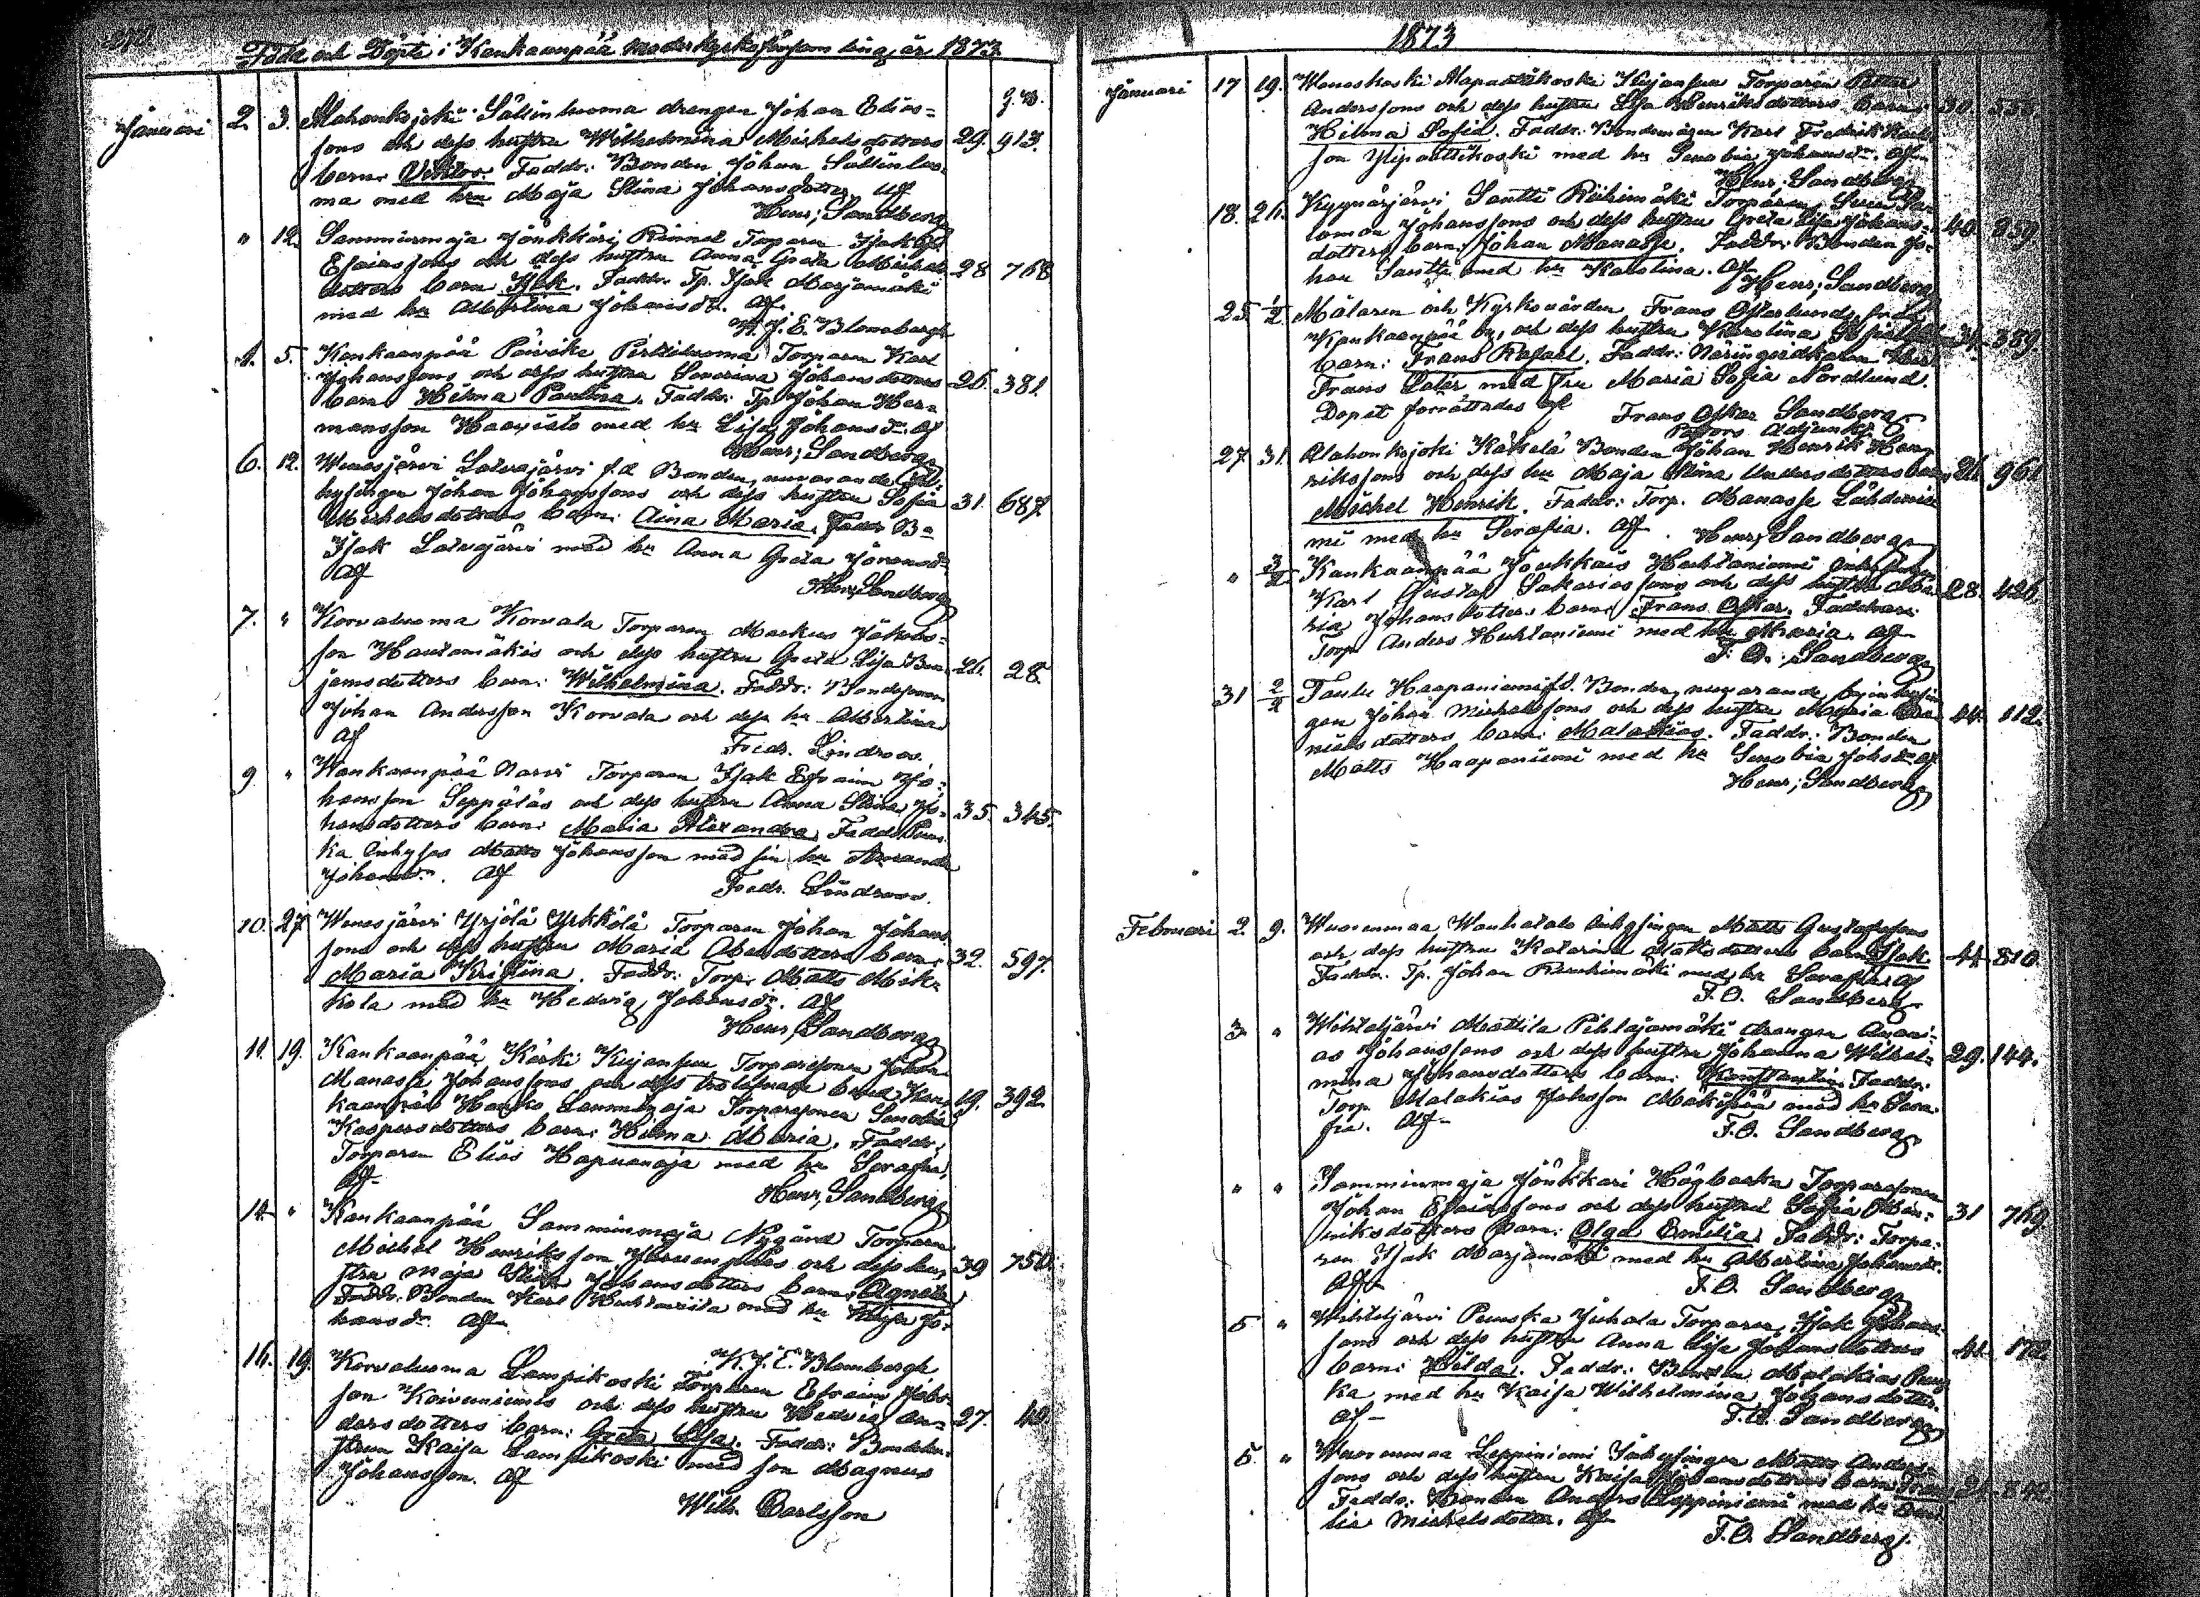 Föda och Döpta i Kankaanpää moderkyrkoförsamling år 1873
Januari 2. 3. Alahonkajoki Sällinluoma drengen Johan Elias-
sons och dess hustru Wilhelmina Michelsdotters 29. 913.
barn: Viktor. Faddr: Bonden Johan Sällinluo-
ma med hu Maja Stina Johansdotter. Af
Henr; Sandberg
" 12. Samminmaja Jönkkäri Torparen Isak
Esaiassons och dess hustru Anna Greta Michels- 28 768
dotters barn Isak. Faddr. Tp. Isak Marjamäki
med hu Albertina Johansdr. Af.
K. J. E. Blombergh
4. 5. Kankaanpää Päivike Torparen Karl
Johanssons och dess hustru Severina Johansdotters 26. 381.
barn Hilma Paulina. Faddr: Tp. Johan Her-
mansson Haavisto med hu Lisa Johansdr. af
Henr; Sandberg
6. 12. Wenesjärvi Latvajärvi f.d. Bonden, nuvarande
hysingen Johan Johanssons och dess hustru Sofia 31. 687.
Michelsdotters barn: Aina Maria. Faddr Bn
Isak Latvajärvi med hu Anna Greta
Af
Henr; Sandberg
7. " Korvaluoma Korvala Torparen Markus Jakobs-
son Hautamäkis och dess hustru Greta Lisa Ben- 26. 28.
jamsdotters barn: Wilhelmina. Faddr: Bondesonen
Johan Andersson Korvala och dess hu Albertina
Af
Fredr. Lindroos.
9 " Kankaanpää Narvi Torparen Isak Efraim Jo-
hansson Seppäläs och dess hustru Anna Stina Jo- 35. 345.
hansdotters barn: Maria Alexandra. Faddr Puus-
ka Inhyses Matts Johansson med sin hu Amanda
Johansdr. Af
Fredr. Lindroos.
10. 27. Wenesjärvi Yrjölä Torparen Johan Johans-
sons och dess hustru Maria Abelsdotters barn: 32. 597.
Maria Kristina. Faddr: Torp. Matts Mik-
kola med hu Hedvig Johansdr. Af
Henr; Sandberg
11. 19. Kankaanpää Kärki Kujansuu Torparesonen Johan
Manasse Johanssons och dess trolofvade brud Kan- 19. 392.
kaanpää Hanko Lamminoja Torparesonen Senobia
Kaspersdotters barn: Hilma Maria. Faddr:
Torparen Elias Hapuanoja med hu Serafia,
Af
Henr; Sandberg
14. " Kankaanpää Samminmaja Nygård Torparen
Michel Henriksson och dess hu- 39 750.
stru Maja Stina Johansdotters barn: Agneta
Faddr. Bonden Karl med hu Kaisa Jo-
hansdr. Af
K. J. E. Blombergh
16. 19. Korvaluoma Lampikoski Torparen Efraim Jakobs-
son Koivuniemis och dess hustru Hedvig An- 27. 49.
dersdotters barn: Greta Lisa. Faddr: Bondehu-
strun Kaisa Lampikoski med son Magnus
Johansson. Af
Wilh. Carlsson
1873
Januari 17 19. Kujansuu Torparen Petter
Anderssons och dess hustru Lisa Henriksdotters barn: 30. 535.
Hilma Sofia. Faddr: Bondemågen Karl Fredrik Karls-
son Ylipaattikoski med hu Senobia Johansdr. Af
Henr; Sandberg
18. 26. Kyynärjärvi Santti Riihimäki Torparen
lomon Johanssons och dess hustru Greta Lisa Johans- 40. 259.
dotters barn: Johan Manasse. Faddr: Bonden Jo-
han Santti med hu Karolina. Af
Henr; Sandberg
25. 1/2 Målaren och Kyrkovärden Frans Österlund från
Kankaanpää by, och dess hustru Karolina 34. 389.
barn: Frans Rafael. Faddr: Näringsidkaren
Frans Salér med Fru Maria Sofia Nordlund.
Dopet förrättades af Frans Oskar Sandberg
Pastors Adjunkt
27. 31. Alahonkajoki Käkelä Bonden Johan Henrik Hen-
rikssons och dess hu Maja Stina Andersdotters barn 26. 961
Michel Henrik. Faddr: Torp. Manasse Lähdenie-
mi med hu Serafia. Af. Henr; Sandberg
" 3/2 Kankaanpää Jönkkäis Huhtaniemi
Karl Gustaf Sakariassons och dess hustru Ma- 28. 426.
ria Johansdotters barn: Frans Oskar. Faddrar:
Torp Anders Huhtaniemi med hu Maria. Af
F. O. Sandberg
31 2/2 Taulu Haapaniemi f.d. Bonden, nuvarande
gen Johan Michelssons och dess hustru Maria 44. 112.
nielsdotters barn: Malakias. Faddr: Bonden
Matts Haapaniemi med hu Senobia Johsdr. af
Henr; Sandberg
Februari 2 9. Wuorenmaa Wanhatalo inhysingen Matts Gustafssons
och dess hustru Katarina Mattsdotters barn Isak 44 810.
Faddr. Tp. Johan med hu Serafia Af
F. O. Sandberg
3. " Wihteljärvi Mattila Pihlajamäki drengen Anani-
as Johanssons och dess hustru Johanna Wilhel- 29. 144.
mina Johansdotters barn: Konstantin. Faddr:
Torp. Malakias Johsson Mäkipää med hu Sera-
fia. Af
F. O. Sandberg
" " Samminmaja Jönkkäri Högbacka Torparesonen
Johan Esaiassons och dess hustru Sofia Hen- 31 769.
riksdotters barn: Olga Emelia. Faddr: Torpa-
ren Isak Marjamäki med hu Albertina Johansdr.
Af
F. O. Sandberg
5 " Wihteljärvi Puuska Juhala Torparen Isak Johans-
sons och dess hustru Anna Lisa Johansdotters 41. 172.
barn: Hilda. Faddr: Bonden Malakias Puus-
ka med hu Kaisa Wilhelmina Johansdotter.
Af
F. O. Sandberg
5. " Wuorenmaa Leppiniemi Inhysingen Matts Anders-
sons och dess hustru Kaisa Johansdotters barn: Frans
Faddr: Bonden Anders Leppiniemi med hu
lia Michelsdotter. Af
F. O. Sandberg.